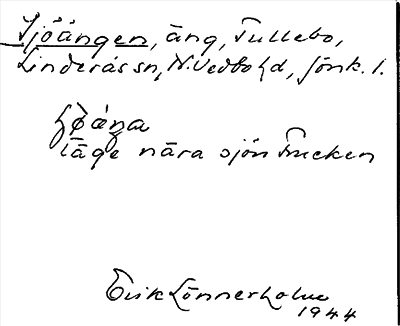 Sjöängen, äng, Tullebo,
Linderås sn, N. Vedbo hd, Jönk. l.
läge nära sjön
Erik Lönnerholm
1944